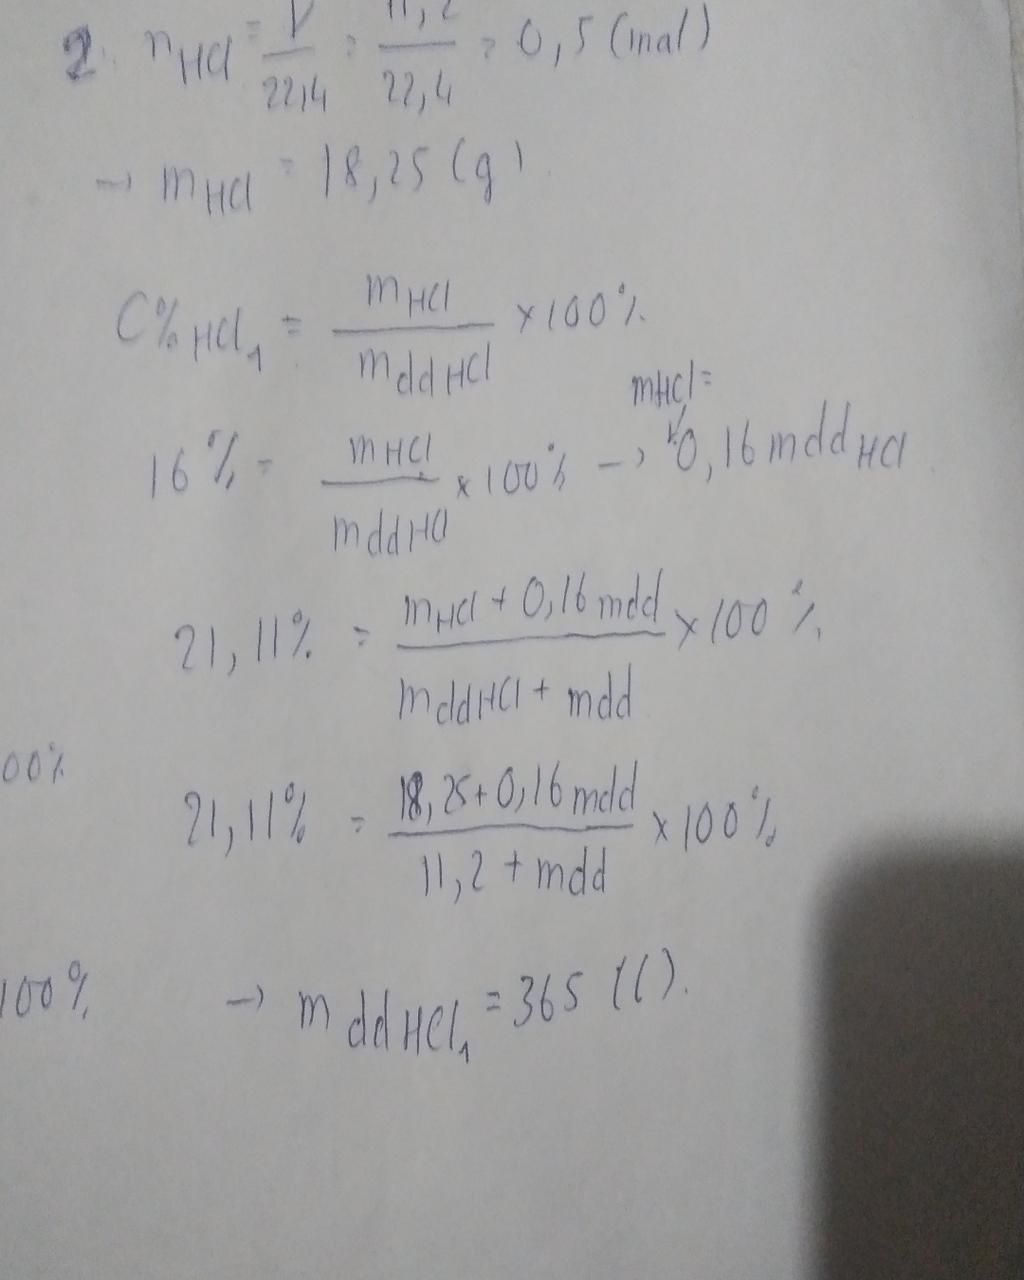 2. nHCl = V/22,4 = 11,2/22,4 = 0,5 (mol)
→ mHCl = 18,25 (g)
C% HCl1 = mHCl/mddHCl × 100%
mHCl =
16% = mHCl/mddHCl × 100% → 0,16 mddHCl
21,11% = mHCl + 0,16 mdd/mddHCl + mdd × 100%
00%
21,11% = 18,25 + 0,16 mdd/11,2 + mdd × 100%
100%
→ mddHCl1 = 365 (l).